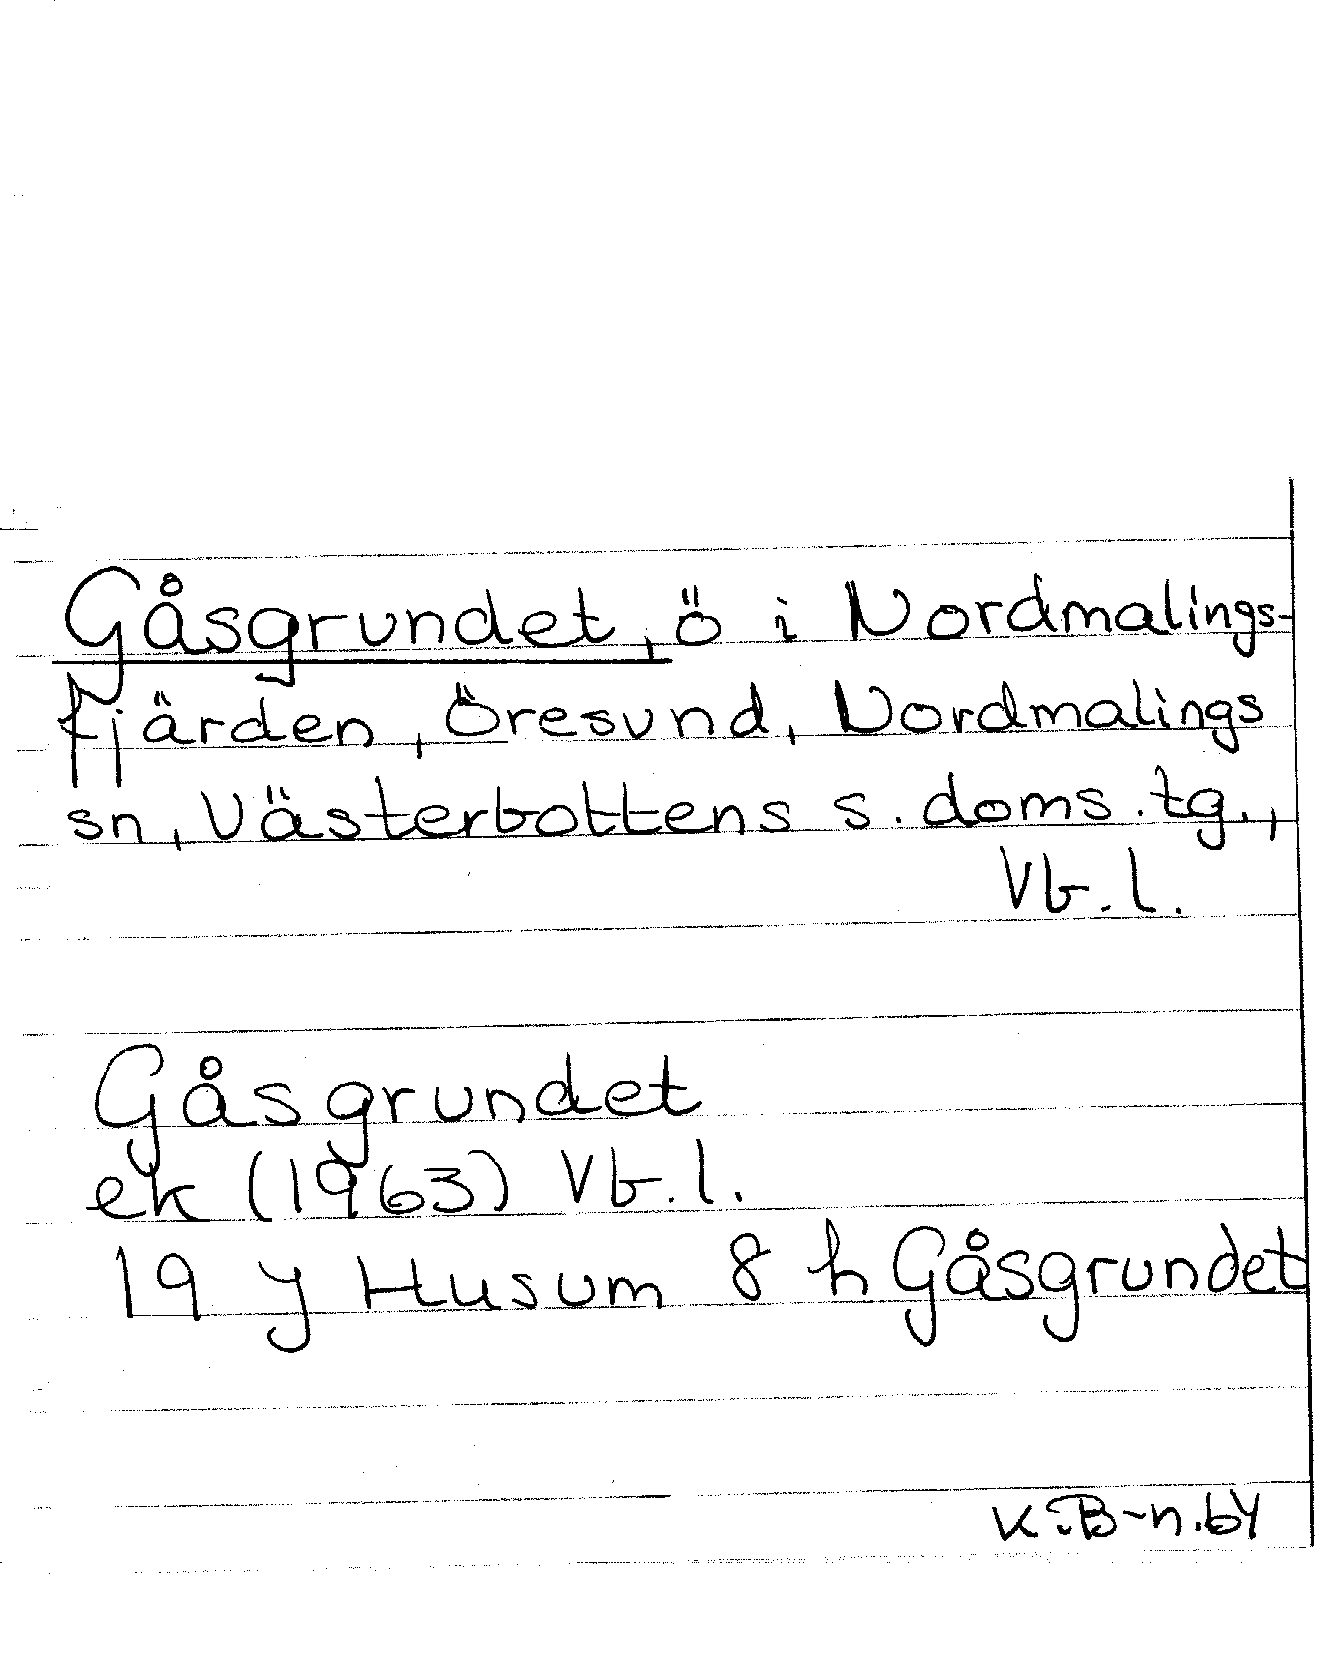 Gåsgrundet, ö i Nordmalings-
fjärden, Öresund, Nordmalings
sn, Västerbottens s. doms. tg.,
Vb. l.
Gåsgrundet
ek (1963) Vb. l.
19 J Husum 8 h Gåsgrundet
K. B-n. 64